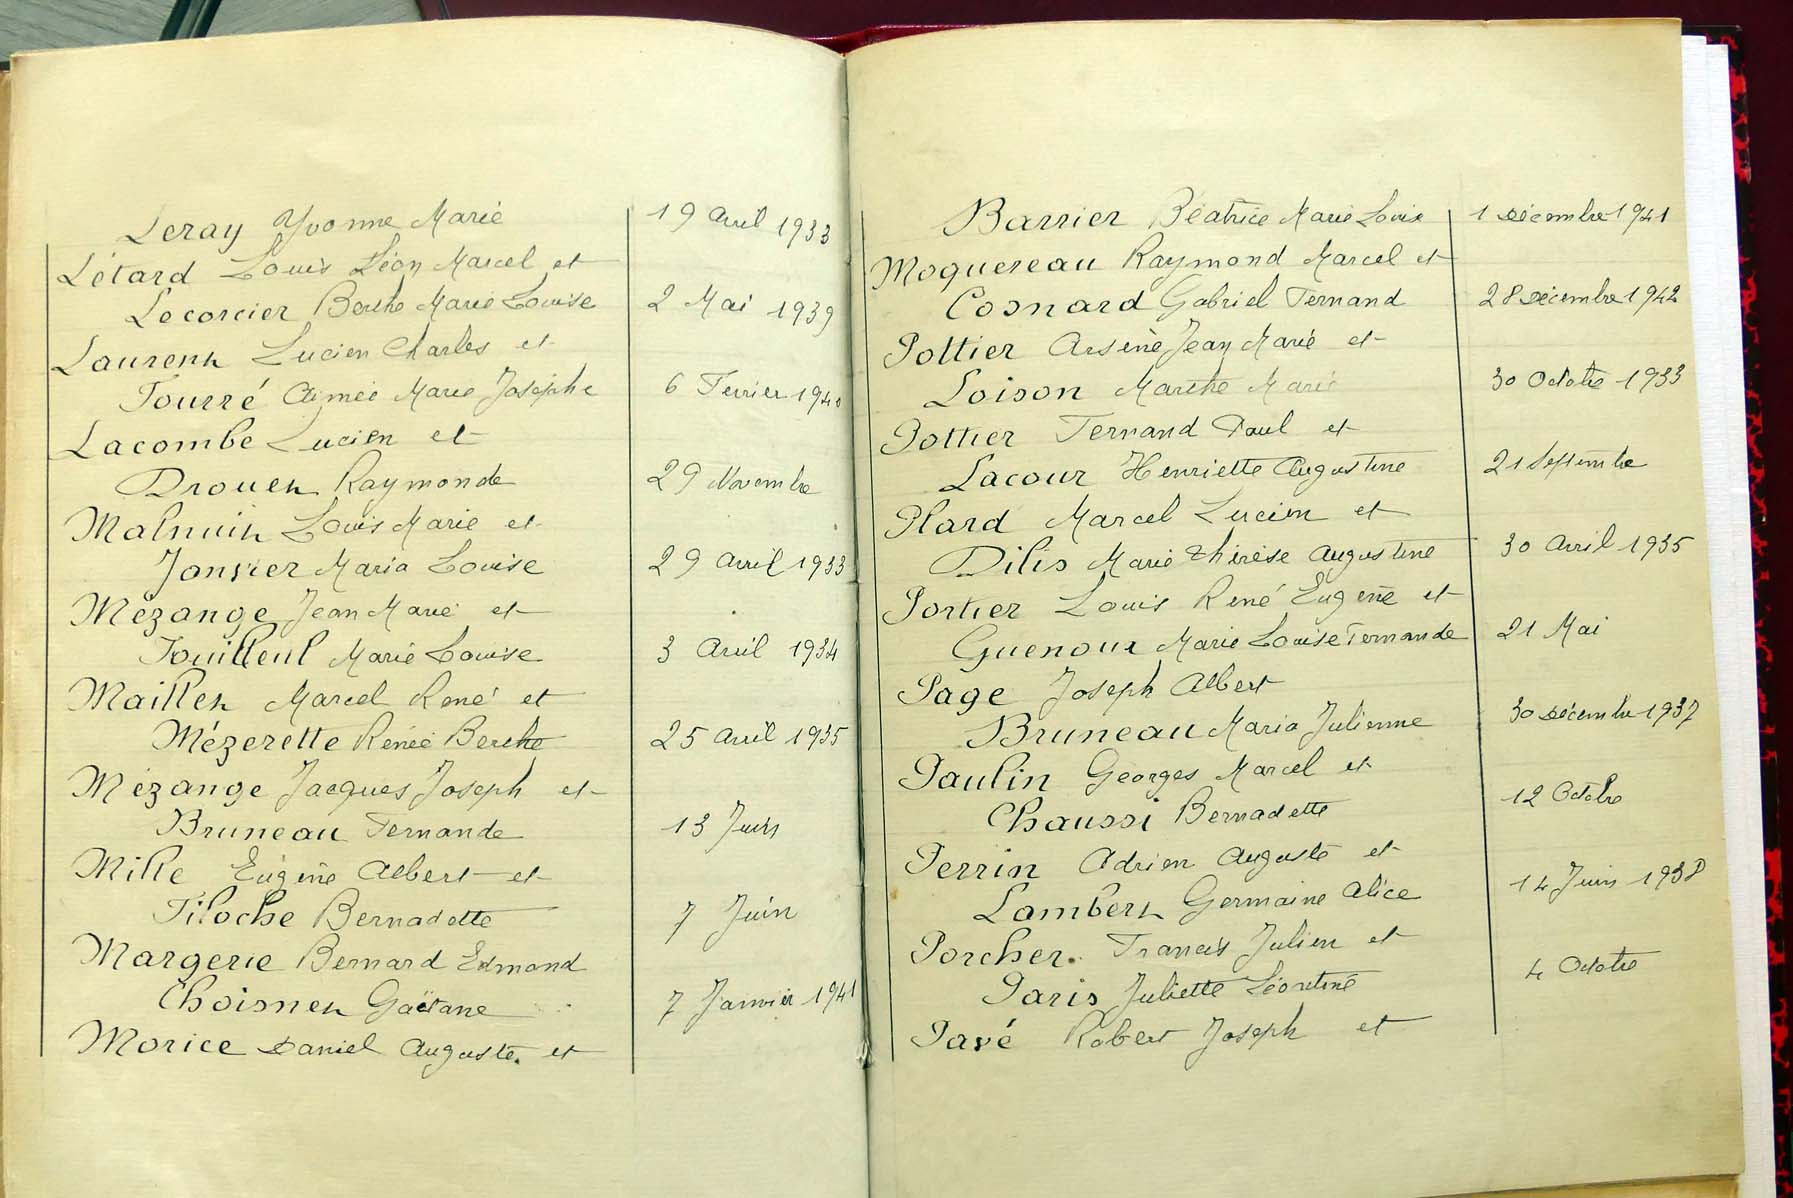 Leray Yvonne Marie 19 Avril 1933
Létard Louis Léon Marcel et
Lecorcier Berthe Marie Louise 2 Mai 1939
Laurent Lucien Charles et
Fourré Aimée Marie Josèphe 6 Février 1940
Lacombe Lucien et
Drouet Raymonde 29 Novembre
Malnuit Louis Marie et
Janvier Maria Louise 29 Avril 1933
Mézange Jean Marie et
Fouilleul Marie Louise 3 Avril 1934
Maillet Marcel René et
Mézerette Renée Berthe 25 Avril 1935
Mézange Jacques Joseph et
Bruneau Fernande 13 Juin
Mille Eugène Albert et
Filoche Bernadette 7 Juin
Margerie Bernard Edmond
Choisnet Gaëtane 7 Janvier 1941
Morice Daniel Auguste et
Barrier Béatrice Marie Louise 1 Décembre 1941
Moquereau Raymond Marcel et
Cosnard Gabriel Fernand 28 Décembre 1942
Pottier Arsène Jean Marie et
Loison Marthe Marie 30 Octobre 1933
Pottier Fernand Paul et
Lacour Henriette Augustine 21 Septembre
Plard Marcel Lucien et
Dilis Marie Thérèse Augustine 30 Avril 1935
Portier Louis René Eugène et
Guenoux Marie Louise Fernande 21 Mai
Page Joseph Albert
Bruneau Maria Julienne 30 Décembre 1937
Paulin Georges Marcel et
Chaussi Bernadette 12 Octobre
Perrin Adrien Auguste et
Lambert Germaine Alice 14 Juin 1938
Porcher Francis Julien et
Paris Juliette Léontine 4 Octobre
Pavé Robert Joseph et